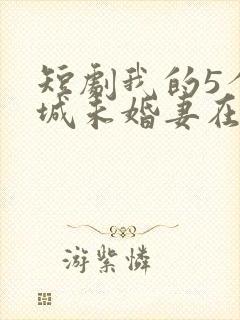 短劇我的5个
城未婚妻在
游紫憐